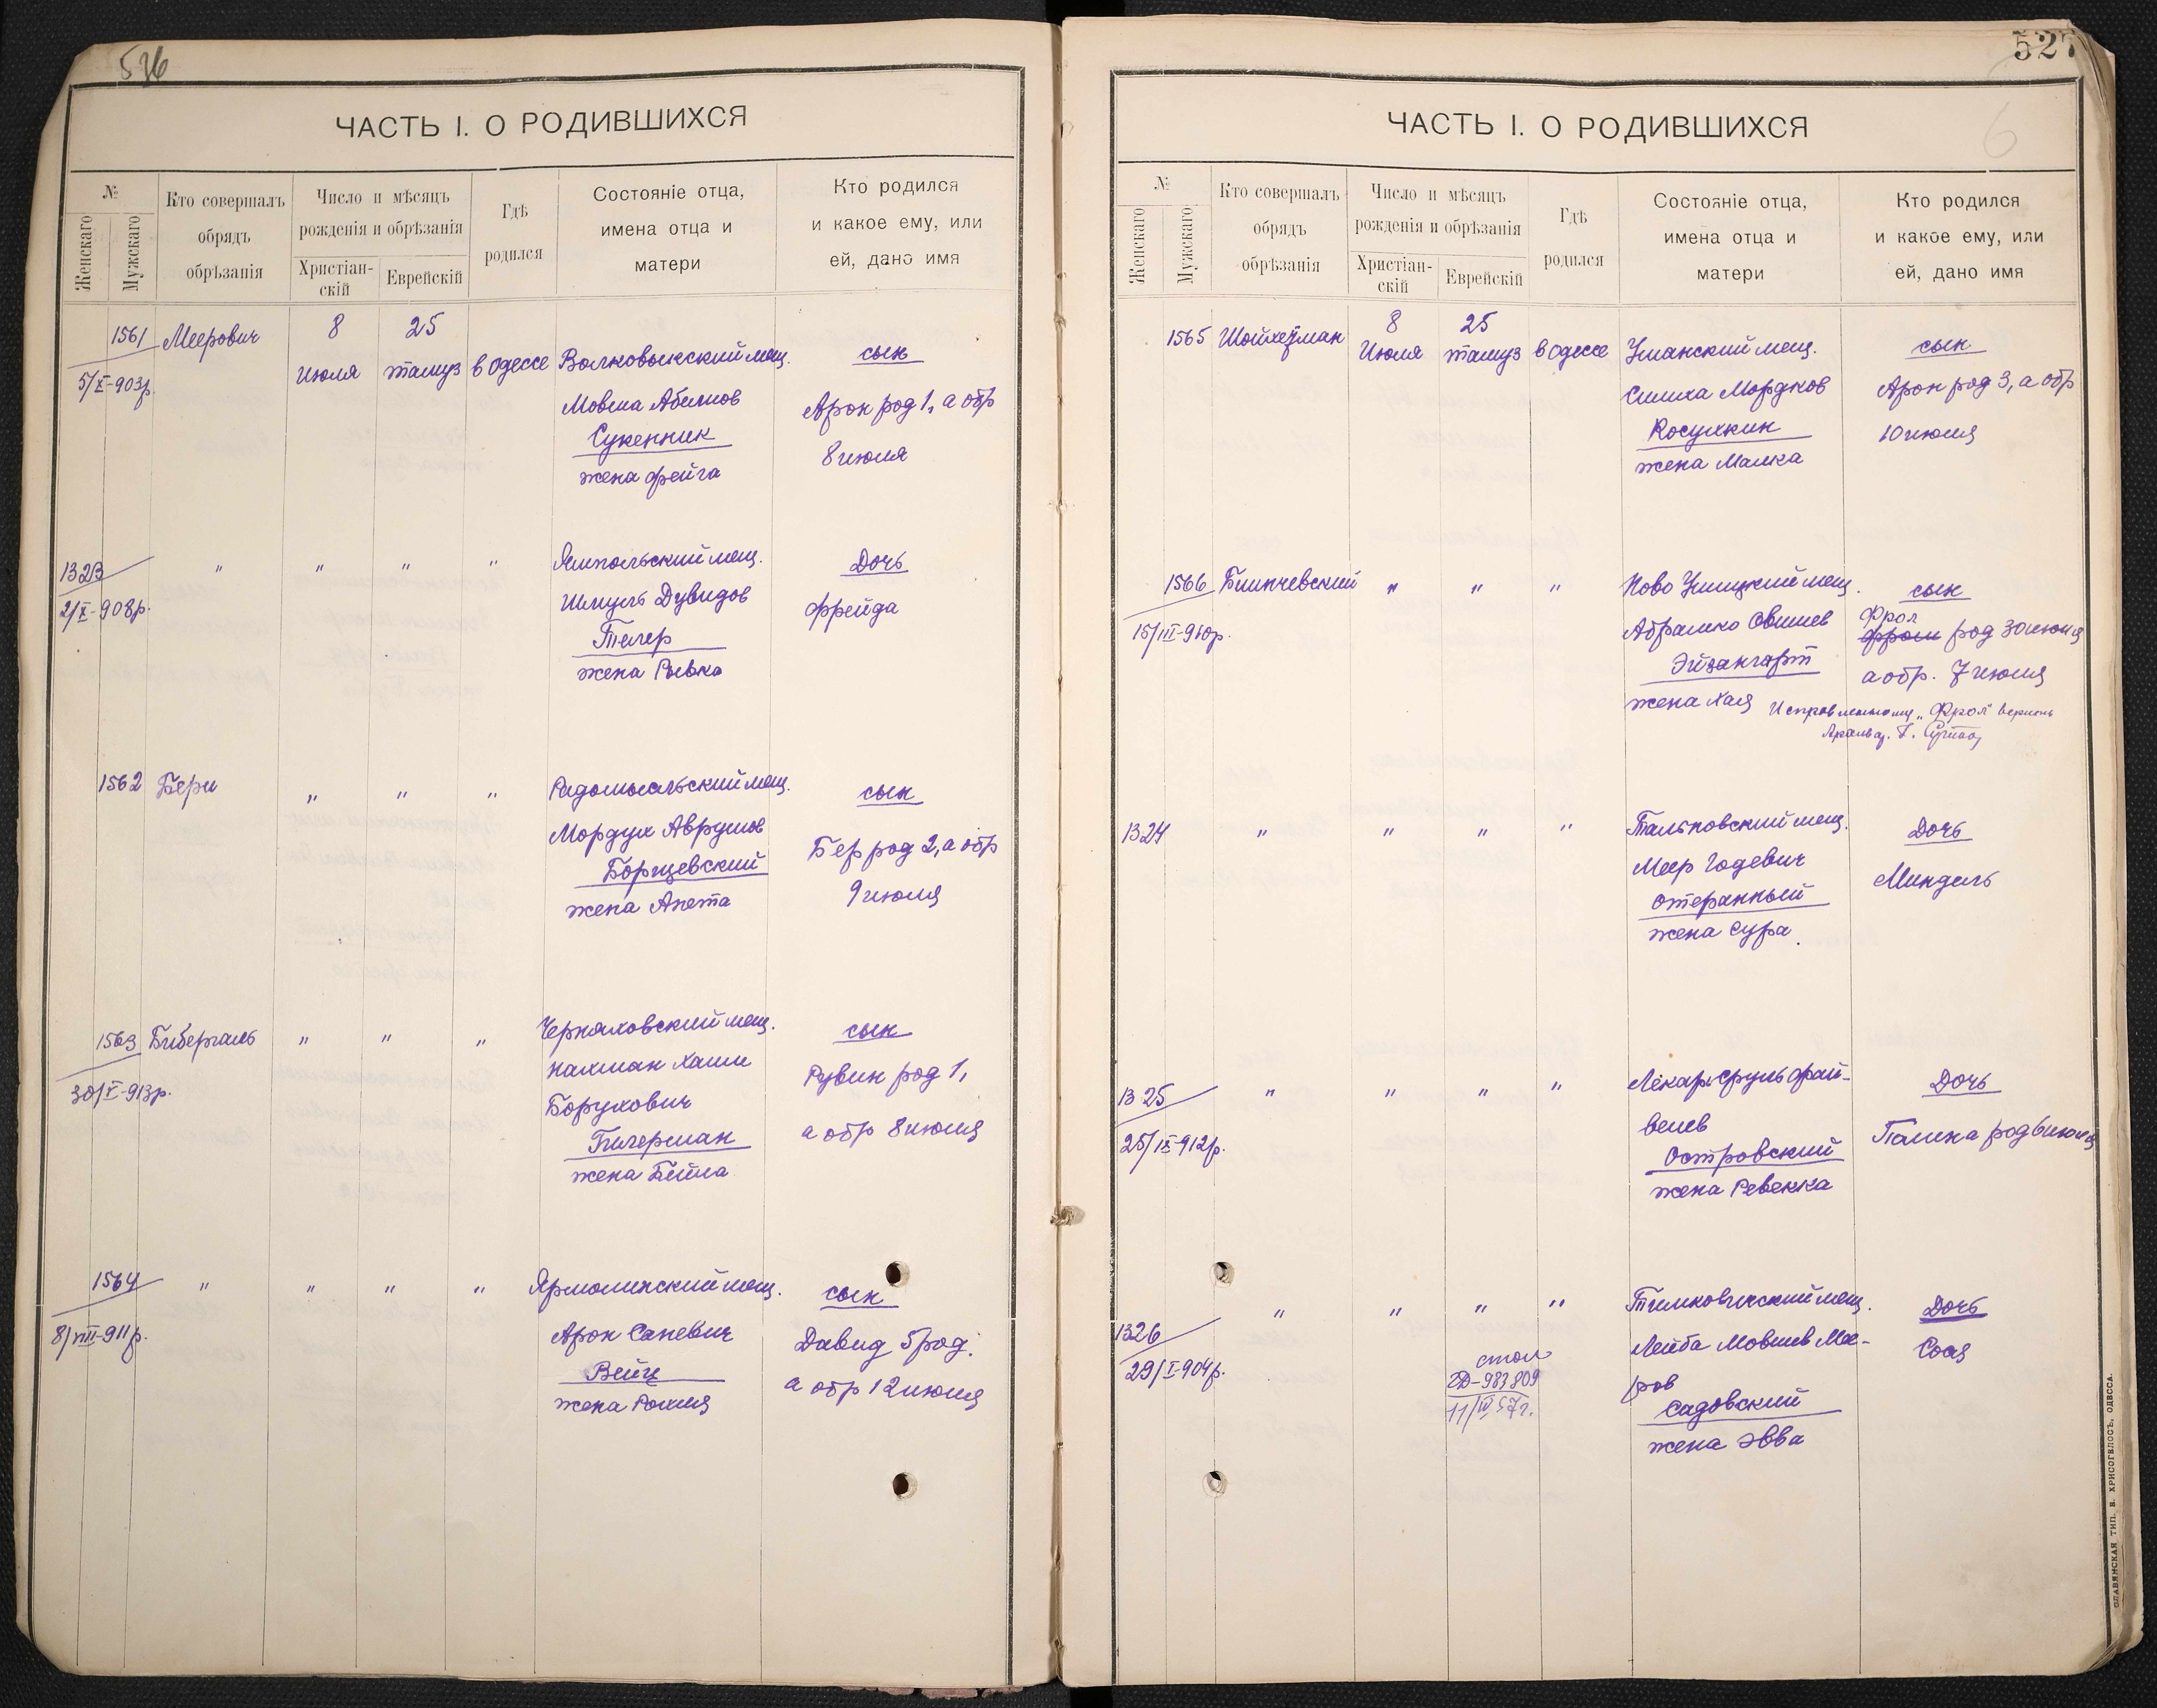 526
ЧАСТЬ I. О РОДИВШИХСЯ
№
Женскаго
Мужскаго
Кто совершалъ
обрядъ
обрѣзанія
Число и мѣсяцъ
рожденія и обрѣзанія
Христіан-
скій
Еврейскій
Гдѣ
родился
Состояніе отца,
имена отца и
матери
Кто родился
и какое ему, или
ей, дано имя
1561 Меерович 8 25
5/X-903р. Июля тамуз в Одессе Волковыский мещ. сын
Мовша Абелиов Арон род 1, а обр
Сукенник 8 июля
жена Фейга
1323 " " " " Ямпольский мещ. Дочь
2/X-908р. Шмуль Дувидов Фрейда
Телер
жена Рывка
1562 Бери " " " Радомысльский мещ. сын
Мордух Аврумов Бер род 2, а обр
Борщевский 9 июля
жена Анета
1563 Бибергаль " " " Черняховский мещ. сын
30/V-913р. Нахман Хаим Рувин род 1,
Борухович а обр 8 июля
Гилерман
жена Бейла
1564 " " " " Ярмолинский мещ. сын
8/VIII-911р. Арон Саневич Давид 5 род.
Вейц а обр 12 июля
жена
527
6
ЧАСТЬ I. О РОДИВШИХСЯ
№
Женскаго
Мужскаго
Кто совершалъ
обрядъ
обрѣзанія
Число и мѣсяцъ
рожденія и обрѣзанія
Христіан-
скій
Еврейскій
Гдѣ
родился
Состояніе отца,
имена отца и
матери
Кто родился
и какое ему, или
ей, дано имя
1565 Шойхетман 8 25
Июля тамуз в Одессе Уманский мещ. сын
Симха Мордков Арон род 3, а обр
Косухкин 10 июля
жена Малка
1566 " " " Ново Ушицкий мещ. сын
15/III-910р. Абрамко Овшиев Фрол
Эйзангарт род 30 июня
жена Хая а обр. 7 июля
Исправленному "Фрол" верить
1324 " " " " Тальновский мещ. Дочь
Меер Годевич Миндель
Отеранный
жена Сура
1325 " " " " Лекарь Сруль Фай-
Дочь
25/IX-912р. велев Полина род 6 июля
Островский
жена Ревекка
1326 " " " " Тимковический мещ. Дочь
29/I-904р. Лейба Мовшев Мее-
ров Соня
Садовский
жена Эвва
стол
2D-983809
11/IV 57г.
СЛАВЯНСКАЯ ТИП. Н. ХРИСОГЕЛОСЪ, ОДЕССА.